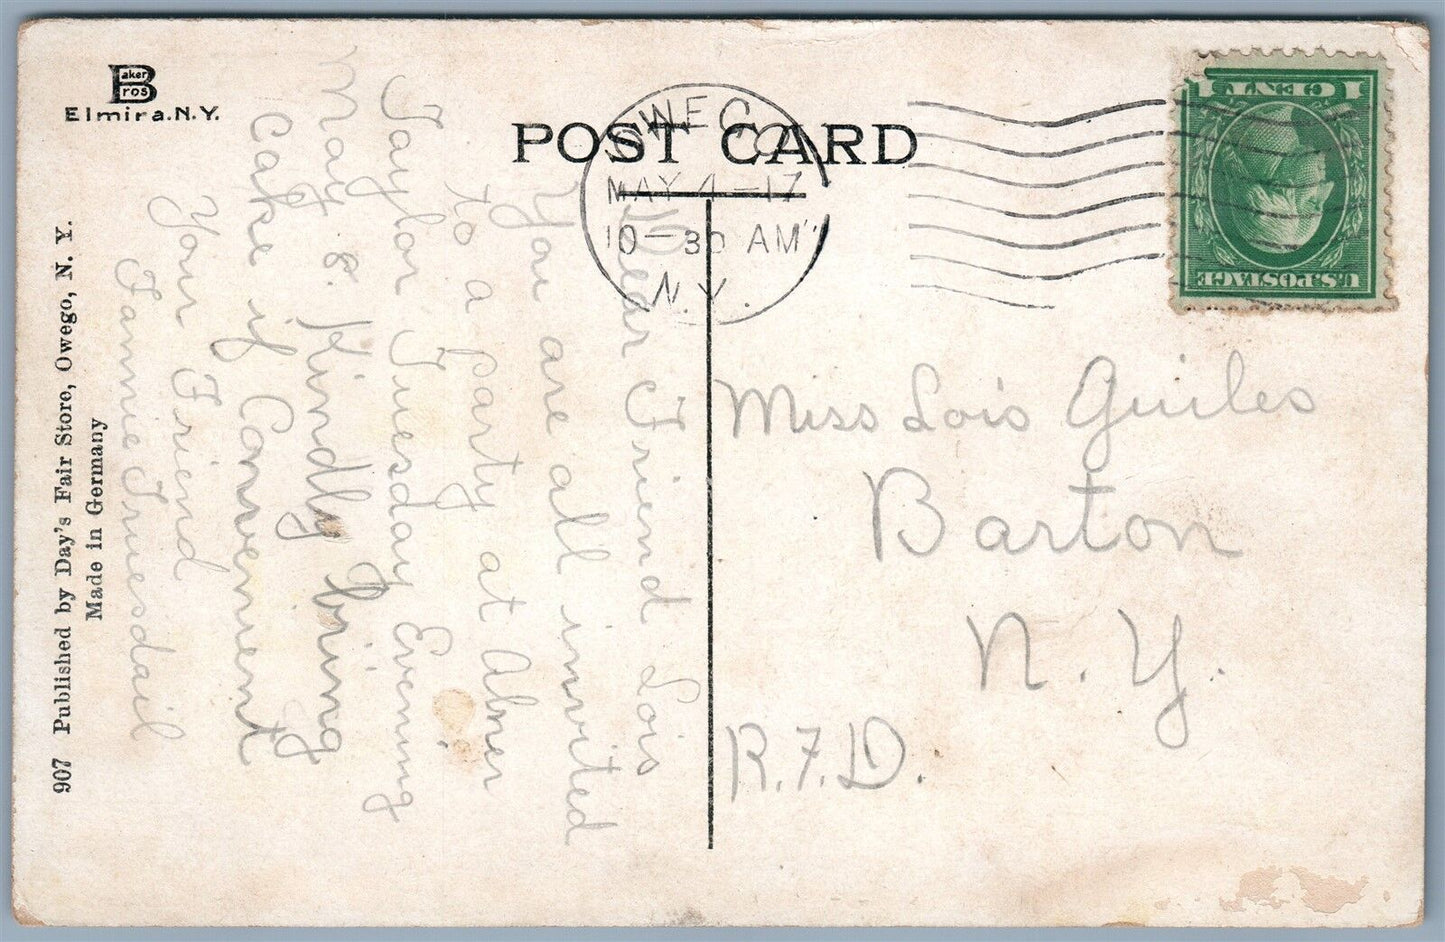 Baker
Bros
Elmira.N.Y.
POST CARD
OWEGO
MAY 4-17
10-30 AM
N.Y.
1 CENT 1
U.S. POSTAGE
Dear Friend Lois
You are all invited
to a party at Abner
Taylor Tuesday Evening
May 8. Kindly bring
Cake if Convenient
Your Friend
Fannie Truesdail
Miss Lois Guiles
Barton
N. Y.
R.F.D.
907 Published by Day's Fair Store, Owego, N. Y.
Made in Germany